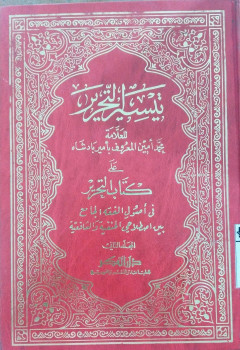 تيسير التحرير
للعلامة
محمد أمين المعروف بأمير بادشاه
على
كتاب التحرير
في أصول الفقه الجامع
بين اصطلاحي الحنفية والشافعية
المجلد الثاني
دار الفكر